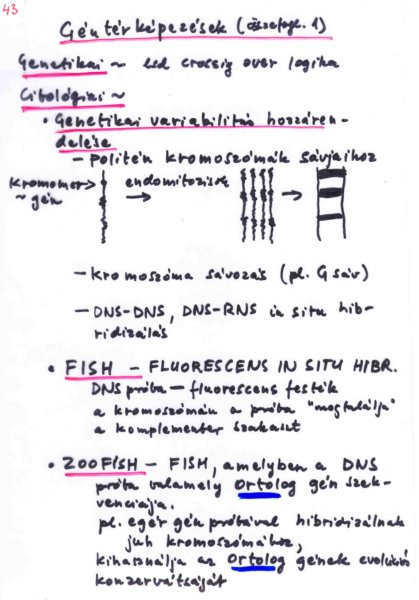 43
Géntérképezések (összefogl. 1)
Genetikai ~ lsd crossig over logika
Citológiai ~
• Genetikai variabilitás hozzáren-
delése
- politén kromoszómák sávjaihoz
Kromomer → endomitózisok →
~ gén
- Kromoszóma sávozás (pl. G sáv)
- DNS-DNS, DNS-RNS in situ hib-
ridizálás
• FISH - FLUORESCENS IN SITU HIBR.
DNS próba - fluorescens festék
a kromoszómán a próba "megtalálja"
a komplementer szakaszt
• ZOOFISH - FISH, amelyben a DNS
próba valamely ortolog gén szek-
venciája.
pl. egér gén próbával hibridizálnak
juh kromoszómához,
kihasználja az ortolog gének evolúciós
konzervátságát